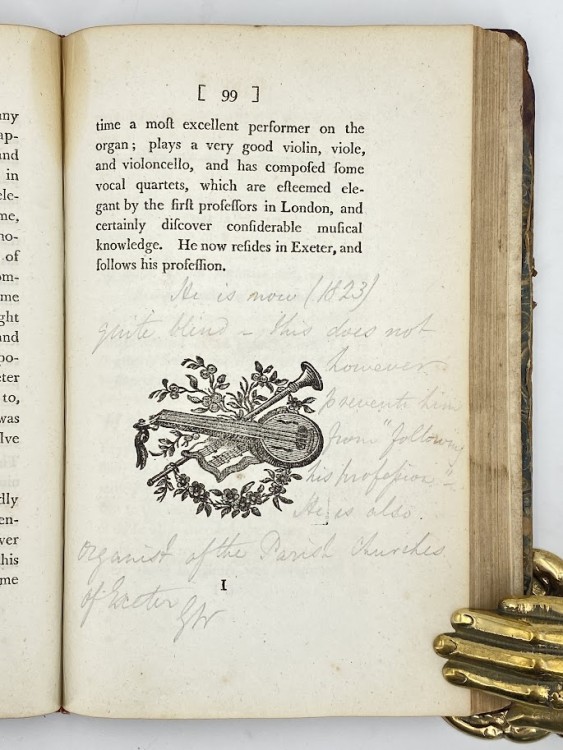 [ 99 ]
time a moſt excellent performer on the
organ; plays a very good violin, viole,
and violoncello, and has compoſed ſome
vocal quartets, which are eſteemed ele-
gant by the firſt profeſſors in London, and
certainly diſcover conſiderable muſical
knowledge. He now reſides in Exeter, and
follows his profeſſion.
He is now (1823)
quite blind – this does not
however
prevente him
from "following
his profeſsion"
He is also
organist of the Parish Churches
of Exeter
GW
I
any
ap-
and
in
ele-
me,
no-
of
om-
me
ght
and
po-
eter
to,
was
lve
dly
en-
ver
his
me